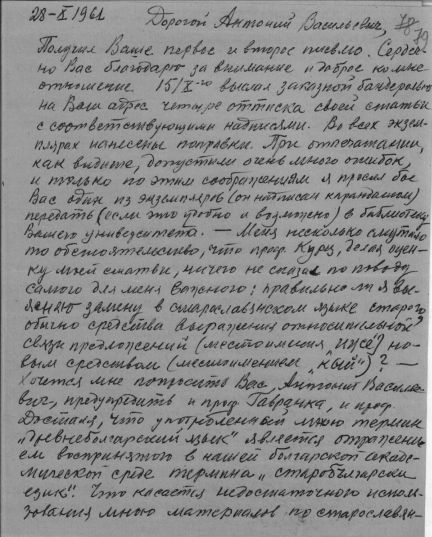 28-X 1961 Дорогой Антоний Васильевич, 78
79
Получил Ваше первое и второе письмо. Сердеч-
но Вас благодарю за внимание и доброе ко мне
отношение. 15/X-го выслал заказной бандеролью
на Ваш адрес четыре оттиска своей статьи
с соответствующими надписями. Во всех экзем-
плярах нанесены поправки. При отпечатании,
как видите, допустили очень много ошибок,
и только по этим соображениям я просил бы
Вас один из экземпляров (он надписан карандашом)
передать (если это удобно и возможно) в библиотеку
Вашего университета. — Меня несколько смутило
то обстоятельство, что проф. Курц, делая оцен-
ку моей статьи, ничего не сказал по поводу
самого для меня важного: правильно ли я вы-
ясняю замену в старославянском языке старого
обычно средства выражения относительной
связи предложений (местоимения „иже“) но-
вым средством (местоимением „кый“)? —
Хочется мне попросить Вас, Антоний Василье-
вич, предупредить и проф. Гавранка, и проф.
Достала, что употребленный мною термин
„древнеболгарский язык“ является отражени-
ем воспринятого в нашей болгарской акаде-
мической среде термина „старобългарски
език“. Что касается недостаточного исполь-
зования мною материалов по старославян-